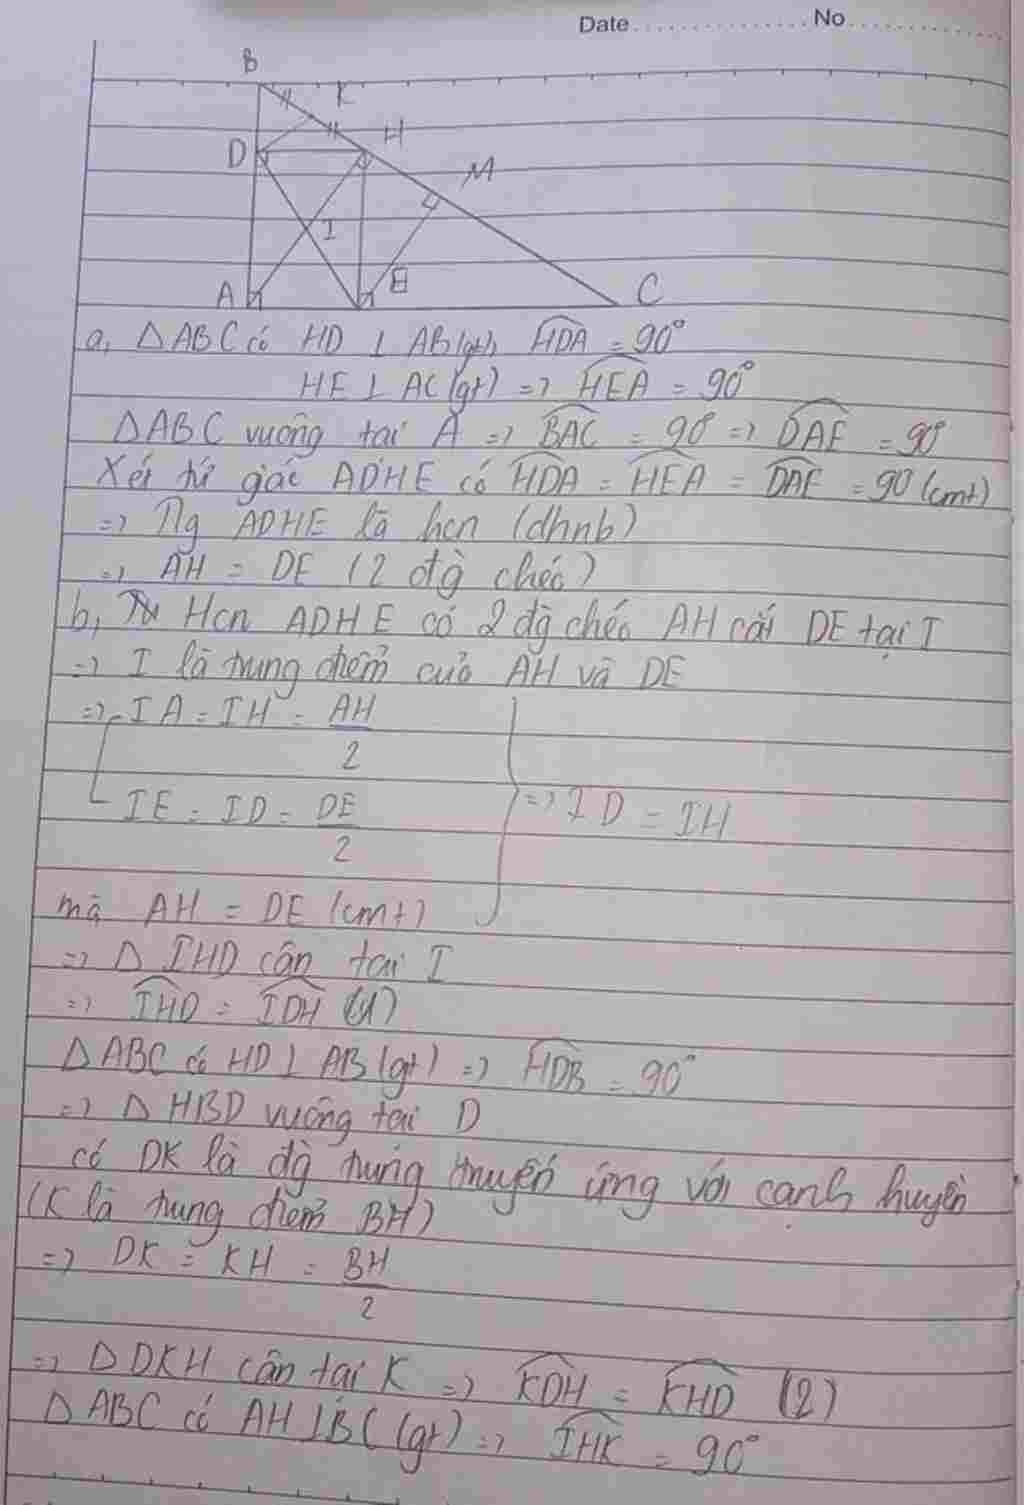 Date No
B
K
H
D
M
I
A
E
C
a, △ABC có HD ⊥ AB (gt), \widehat{HDA} = 90°
HE ⊥ AC (gt) => \widehat{HEA} = 90°
△ABC vuông tại A => \widehat{BAC} = 90° => \widehat{DAE} = 90°
Xét tứ giác ADHE có \widehat{HDA} = \widehat{HEA} = \widehat{DAE} = 90 (cmt)
=> ADHE là hcn (dhnb)
=> AH = DE (2 đg chéo)
b, Hcn ADHE có 2 đg chéo AH cắt DE tại I
=> I là trung điểm của AH và DE
=> IA = IH = AH/2
IE = ID = DE/2
=> ID = IH
mà AH = DE (cmt)
=> △ IHD cân tại I
=> \widehat{IHD} = \widehat{IDH} (1)
△ABC có HD ⊥ AB (gt) => \widehat{HDB} = 90°
=> △ HBD vuông tại D
có DK là đg trung truyến ứng với cạnh huyền
(K là trung điểm BH)
=> DK = KH = BH/2
=> △DKH cân tại K => \widehat{KDH} = \widehat{KHD} (2)
△ABC có AH ⊥ BC (gt) => \widehat{IHK} = 90°